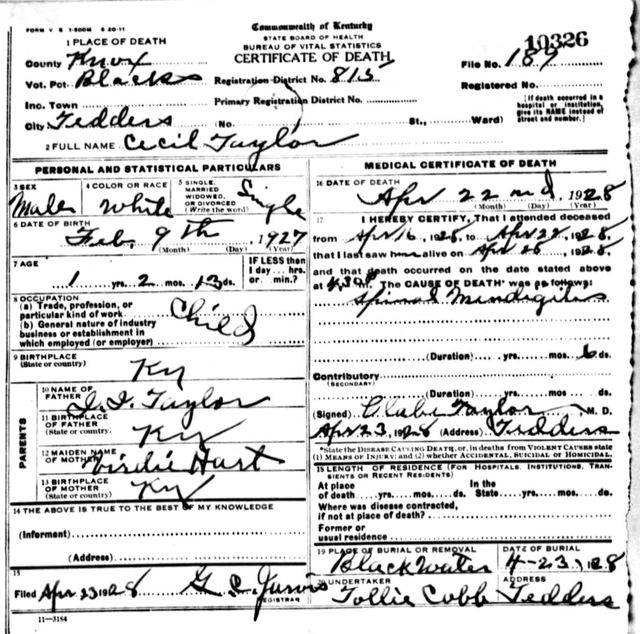 FORM V S 1-500M 6 20-11
Commonwealth of Kentucky
STATE BOARD OF HEALTH
BUREAU OF VITAL STATISTICS
CERTIFICATE OF DEATH
10326
1 PLACE OF DEATH
County Knox
File No. 187
Vot. Pct. Blacks
Registration District No. 815
Registered No.
Inc. Town
Primary Registration District No.
[If death occurred in a hospital or institution, give its NAME instead of street and number.]
City Tedders (No. St., Ward)
2 FULL NAME Cecil Taylor
PERSONAL AND STATISTICAL PARTICULARS
3 SEX Male
4 COLOR OR RACE White
5 SINGLE, MARRIED WIDOWED, OR DIVORCED (Write the word) Single
6 DATE OF BIRTH
Feb. 9th, 1927
(Month) (Day) (Year)
7 AGE
1 yrs. 2 mos. 13 ds.
IF LESS than 1 day... hrs. or min.?
8 OCCUPATION
(a) Trade, profession, or particular kind of work Child
(b) General nature of industry business or establishment in which employed (or employer)
9 BIRTHPLACE
(State or country) Ky
PARENTS
10 NAME OF FATHER Taylor
11 BIRTHPLACE OF FATHER
(State or country. Ky
12 MAIDEN NAME OF MOTHER Virdie Hart
13 BIRTHPLACE OF MOTHER
(State or country) Ky
14 THE ABOVE IS TRUE TO THE BEST OF MY KNOWLEDGE
(Informant)
(Address)
15
Filed Apr 23 1928 G. C. Jarvis
REGISTRAR
11—3184
MEDICAL CERTIFICATE OF DEATH
16 DATE OF DEATH
Apr 22nd, 1928
(Month) (Day) (Year)
17 I HEREBY CERTIFY, That I attended deceased
from Apr 16, 1928, to Apr 22, 1928,
that I last saw him alive on Apr 1928,
and that death occurred on the date stated above
at 4.30P m. The CAUSE OF DEATH* was as follows:
Spinal Mindigitus
(Duration) yrs. mos. 6 ds.
Contributory
(SECONDARY)
(Duration) yrs. mos. ds.
(Signed) Taylor M. D.
Apr 23, 1928 (Address) Tedders
*State the DISEASE CAUSING DEATH, or, in deaths from VIOLENT CAUSES state
(1) MEANS OF INJURY; and (2) whether ACCIDENTAL, SUICIDAL or HOMICIDAL.
18 LENGTH OF RESIDENCE (FOR HOSPITALS, INSTITUTIONS, TRANSIENTS OR RECENT RESIDENTS)
At place of death yrs. mos. ds. In the State yrs. mos. ds.
Where was disease contracted, if not at place of death?
Former or usual residence
19 PLACE OF BURIAL OR REMOVAL Black Water
DATE OF BURIAL 4-23, 1928
20 UNDERTAKER Tollie Cobb
ADDRESS Tedders